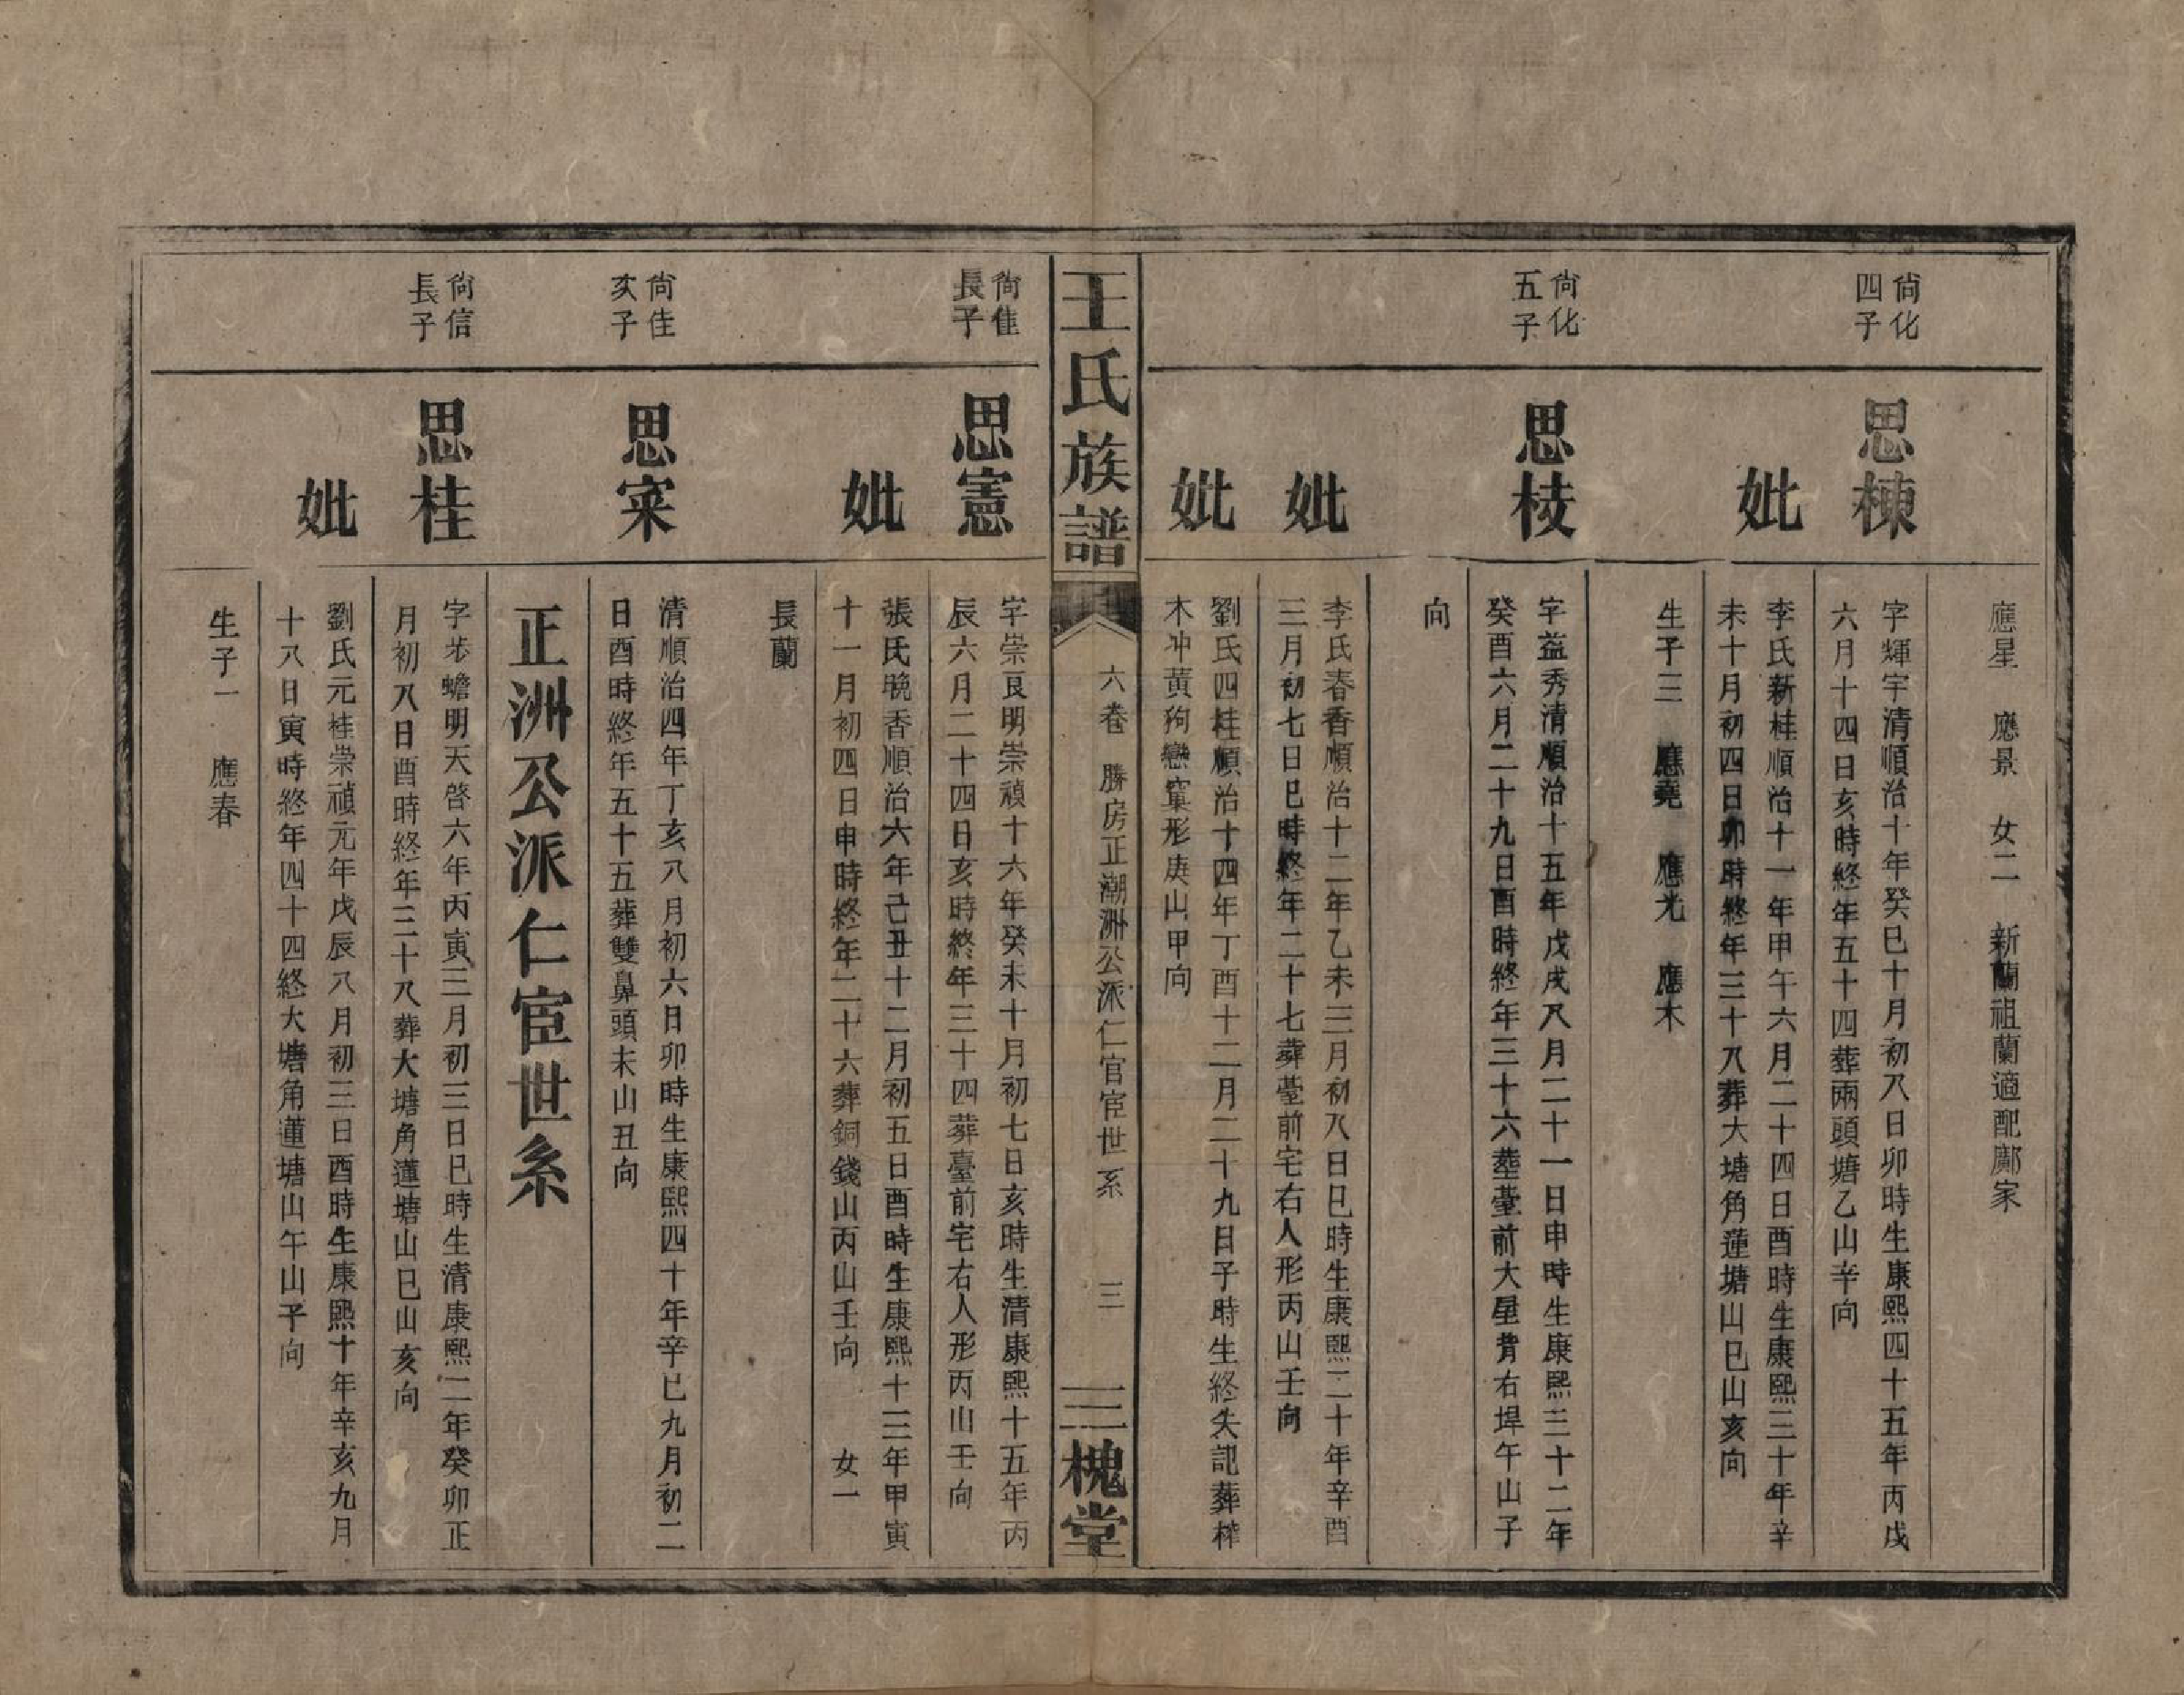 應星　應景　女二　新蘭祖蘭適配鄺家
尙化
四子
思棟
字輝宇清順治十年癸巳十月初八日卯時生康熙四十五年丙戌
六月十四日亥時終年五十四葬兩頭塘乙山辛向
妣
李氏新桂順治十一年甲午六月二十四日酉時生康熙三十年辛
未十月初四日卯時終年三十八葬大塘角蓮塘山巳山亥向
生子三　應堯　應光　應木
尙化
五子
思棱
字益秀清順治十五年戊戌八月二十一日申時生康熙三十二年
癸酉六月二十九日酉時終年三十六塟臺前大星背右埠午山子
向
妣
李氏春香順治十二年乙未三月初八日巳時生康熙二十年辛酉
三月初七日巳時終年二十七葬臺前宅右人形丙山壬向
妣
劉氏四桂順治十四年丁酉十二月二十九日子時生終失記葬榨
木冲黃狗戀窠形庚山甲向
王氏族譜
六卷　勝房正潮洲公派仁官宦世系　三
三槐堂
尙佳
長子
思憲
字崇良明崇禎十六年癸未十月初七日亥時生清康熙十五年丙
辰六月二十四日亥時終年三十四葬臺前宅右人形丙山壬向
妣
張氏晚香順治六年己丑十二月初五日酉時生康熙十三年甲寅
十一月初四日申時終年二十六葬銅錢山丙山壬向　女一
長蘭
尙佳
次子
思寀
清順治四年丁亥八月初六日卯時生康熙四十年辛巳九月初二
日酉時終年五十五葬雙鼻頭未山丑向
正洲公派仁宦世系
尙信
長子
思桂
字步蟾明天啓六年丙寅三月初三日巳時生清康熙二年癸卯正
月初八日酉時終年三十八葬大塘角蓮塘山巳山亥向
妣
劉氏元桂崇禎元年戊辰八月初三日酉時生康熙十年辛亥九月
十八日寅時終年四十四終大塘角蓮塘山午山子向
生子一　應春